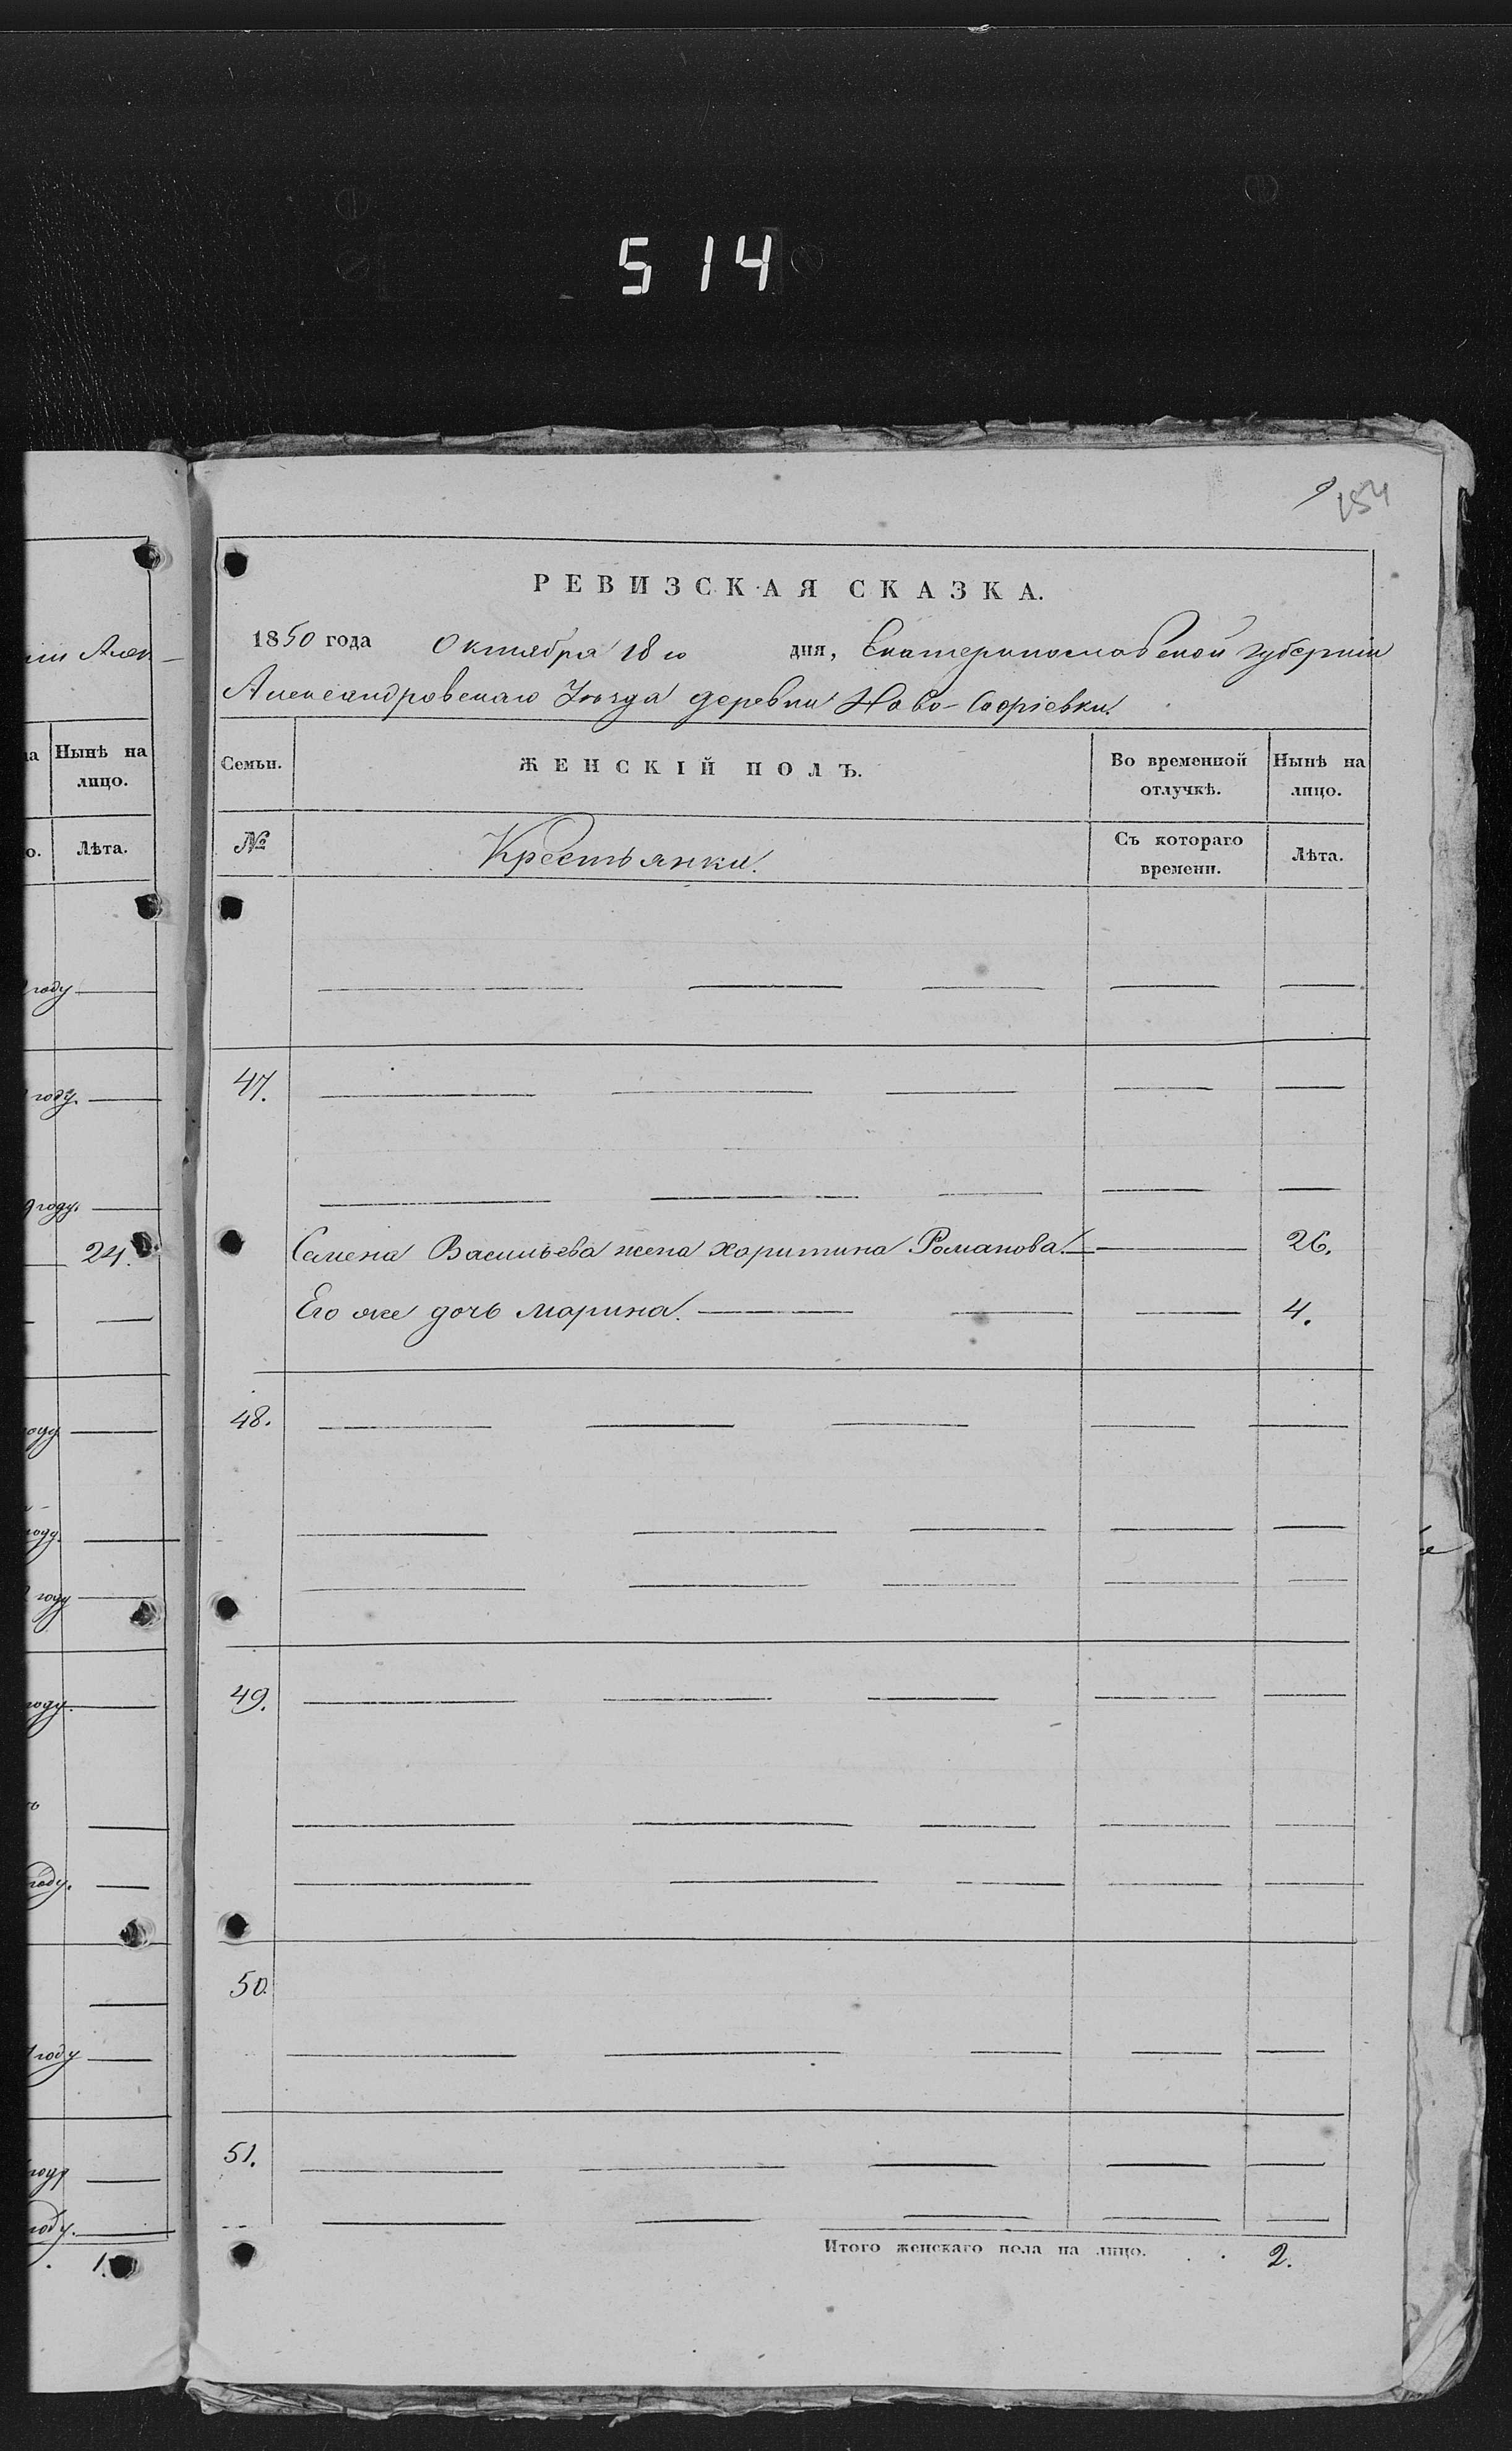 514
154
РЕВИЗСКАЯ СКАЗКА.
1850 года Октября 18го дня, Екатеринославской губернии
Александровскаго Уѣзда деревни Ново-Софіевки.
Семьи. ЖЕНСКІЙ ПОЛЪ. Во временной отлучкѣ. Нынѣ на лицо.
№ Крестьянки. Съ котораго времени. Лѣта.
47.
Семена Васильева жена Харитина Романова. 26.
Его же дочь Марина. 4.
48.
49.
50.
51.
Итого женскаго пола на лицо. . . 2.
Нынѣ на лицо.
Лѣта.
году
году.
году.
24.
году
году.
году
году.
году.
году
году
году.
1.